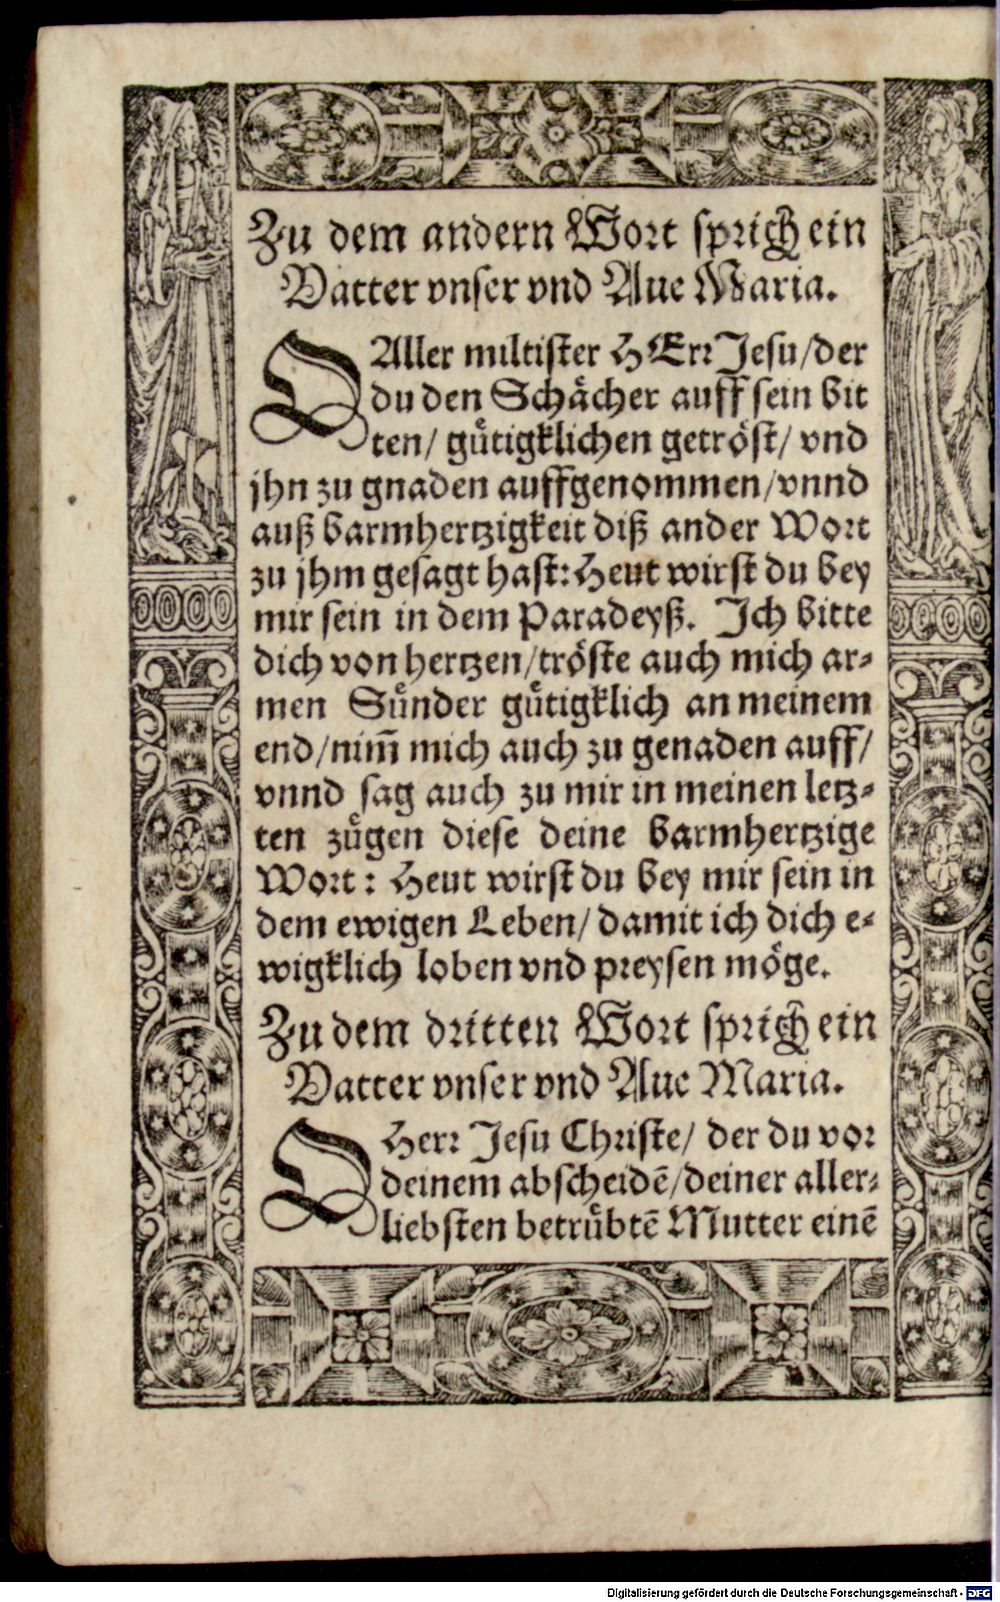 Zu dem andern Wort sprich ein
Vatter vnser vnd Aue Maria.
O Aller miltister HErr Jesu/der
du den Schaͤcher auff sein bit
ten/ guͤtigklichen getroͤst/ vnd
jhn zu gnaden auffgenommen/vnnd
auß barmhertzigkeit diß ander Wort
zu jhm gesagt hast: Heut wirst du bey
mir sein in dem Paradeyß. Ich bitte
dich von hertzen/troͤste auch mich ar⸗
men Suͤnder guͤtigklich an meinem
end/nim̃ mich auch zu genaden auff/
vnnd sag auch zu mir in meinen letz⸗
ten zuͤgen diese deine barmhertzige
Wort: Heut wirst du bey mir sein in
dem ewigen Leben/damit ich dich e⸗
wigklich loben vnd preysen moͤge.
Zu dem dritten Wort sprich ein
Vatter vnser vnd Aue Maria.
O Herr Jesu Christe/ der du vor
deinem abscheidẽ/deiner aller⸗
liebsten betruͤbtẽ Mutter einẽ
Digitalisierung gefördert durch die Deutsche Forschungsgemeinschaft - DFG